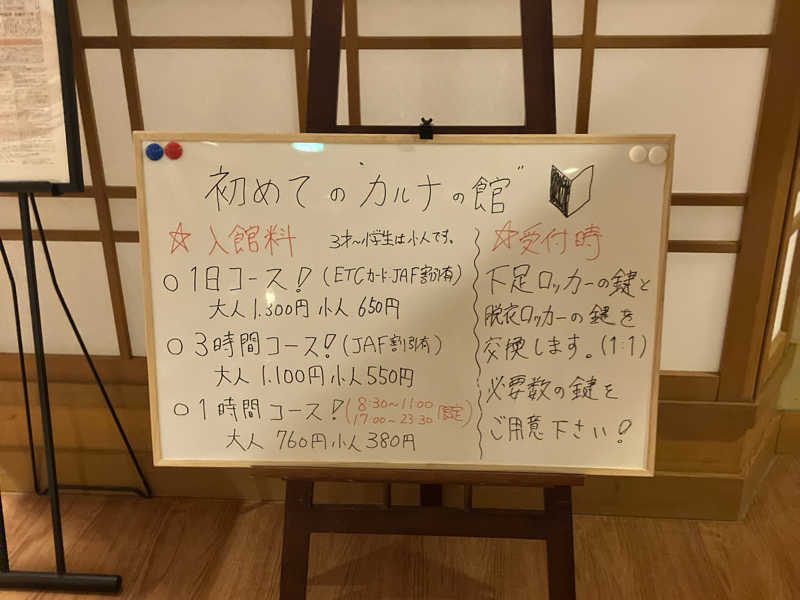 初めての"カルナの館"
☆入館料 3才~小学生は小人です。
○1日コース!(ETCカード・JAF割引有)
大人1.300円 小人650円
○3時間コース!(JAF割引有)
大人1.100円 小人550円
○1時間コース!(8:30~11:00
17:00~23:30限定)
大人 760円 小人380円
☆受付時
下足ロッカーの鍵と
脱衣ロッカーの鍵を
交換します。(1:1)
必要数の鍵を
ご用意下さい!